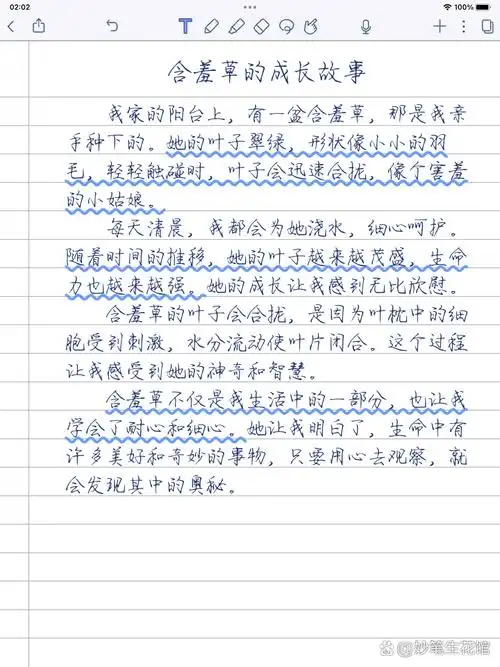 02:02
100%
含羞草的成长故事
我家的阳台上，有一盆含羞草，那是我亲
手种下的。她的叶子翠绿，形状像小小的羽
毛，轻轻触碰时，叶子会迅速合拢，像个害羞
的小姑娘。
每天清晨，我都会为她浇水，细心呵护。
随着时间的推移，她的叶子越来越茂盛，生命
力也越来越强。她的成长让我感到无比欣慰。
含羞草的叶子会合拢，是因为叶枕中的细
胞受到刺激，水分流动使叶片闭合。这个过程
让我感受到她的神奇和智慧。
含羞草不仅是我生活中的一部分，也让我
学会了耐心和细心。她让我明白了，生命中有
许多美好和奇妙的事物，只要用心去观察，就
会发现其中的奥秘。
@妙笔生花馆